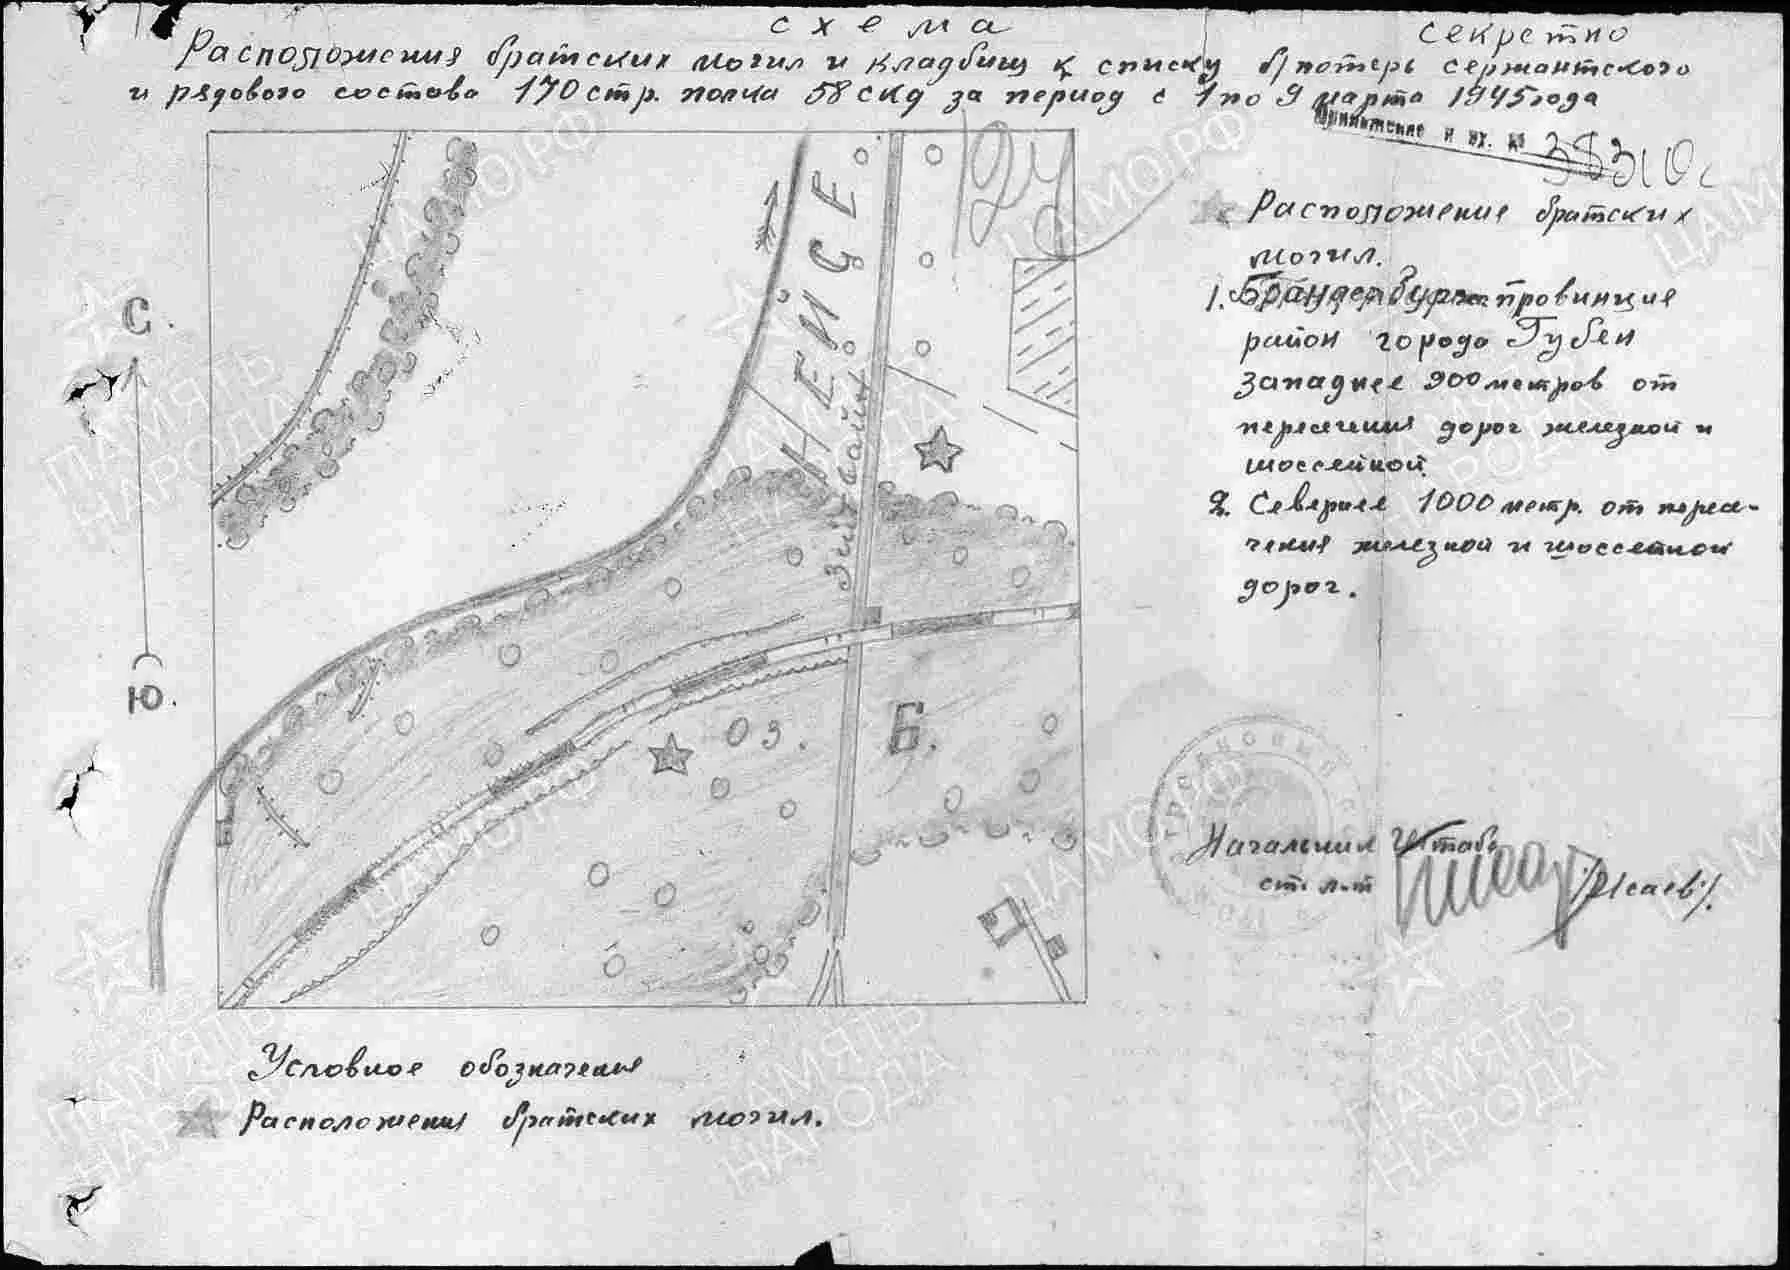 схема
секретно
Расположения братских могил и кладбищ к списку б/потерь сержантского
и рядового состава 170 стр. полка 58 СКД за период с 1 по 9 марта 1945 года
и вх. №
Расположение братских
могил.
1. Бранденбург провинция
район города Губен
западнее 900 метров от
пересечения дорог железной и
шоссейной.
2. Севернее 1000 метр. от пересе-
чения железной и шоссейной
дорог.
С.
Ю.
НЕЙСЕ
ОЗ.
Б.
Начальник Штаба
ст. л-т
/Исаев/.
Условное обозначения
Расположения братских могил.
ПАМЯТЬ
НАРОДА
ЦАМО.РФ